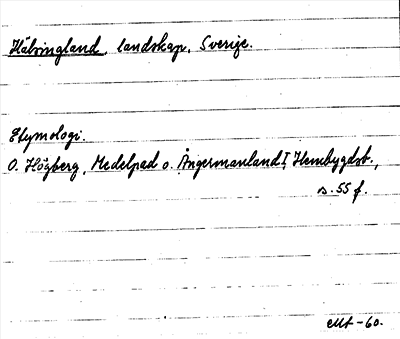 Hälsingland, landskap, Sverige.
Etymologi.
O. Högberg, Medelpad o. Ångermanland I, Hembygdsb.,
s. 55 f.
-60.